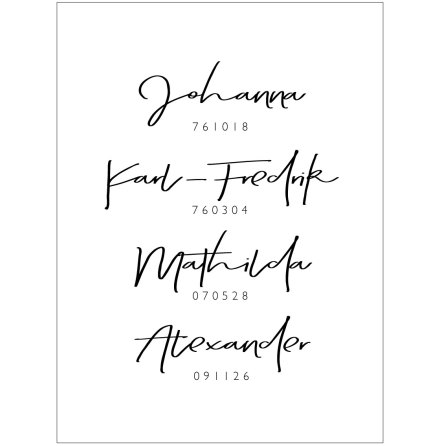 Johanna
761018
Karl-Fredrik
760304
Mathilda
070528
Alexander
091126